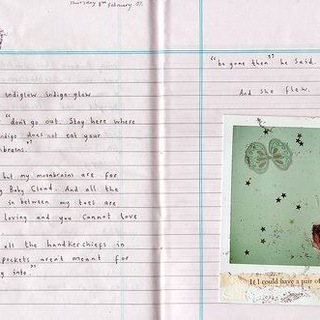 Thursday 8th February 07.
indiglow indigo.glow
"don't go out. Stay here where
indigo does not eat your
brains."
but my moonbrains are for
my Baby Cloud. And all the
in between my toes are
loving and you cannot love
all the handkerchiefs in
pockets aren't meant for
into."
"be gone then" he said.
And she flew.
If I could have a pair of